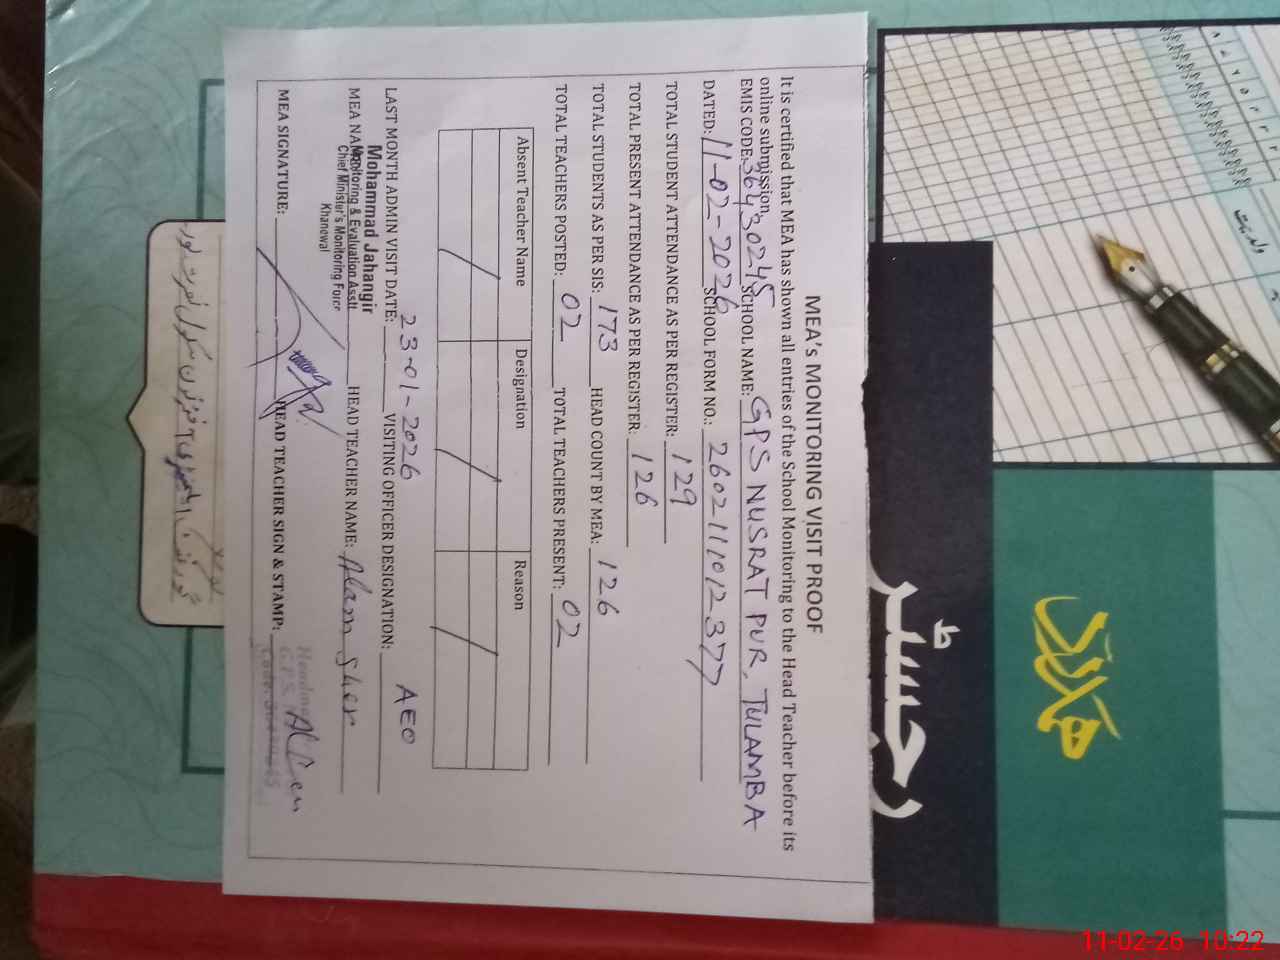 MEA's MONITORING VISIT PROOF
It is certified that MEA has shown all entries of the School Monitoring to the Head Teacher before its
online submission.
EMIS CODE: 36430245 SCHOOL NAME: GPS NUSRAT PUR, TULAMBA
DATED: 11-02-2026 SCHOOL FORM NO.: 2602111012377
TOTAL STUDENT ATTENDANCE AS PER REGISTER: 129
TOTAL PRESENT ATTENDANCE AS PER REGISTER: 126
TOTAL STUDENTS AS PER SIS: 173 HEAD COUNT BY MEA: 126
TOTAL TEACHERS POSTED: 02 TOTAL TEACHERS PRESENT: 02
Absent Teacher Name Designation Reason
LAST MONTH ADMIN VISIT DATE: 23-01-2026 VISITING OFFICER DESIGNATION: AEO
Mohammad Jahangir
MEA NAME: HEAD TEACHER NAME: Alam Sher
Monitoring & Evaluation Asstt
Chief Minister's Monitoring Force
Khanewal
MEA SIGNATURE: HEAD TEACHER SIGN & STAMP:
G.P.S.
رجسٹر
11-02-26 10:22